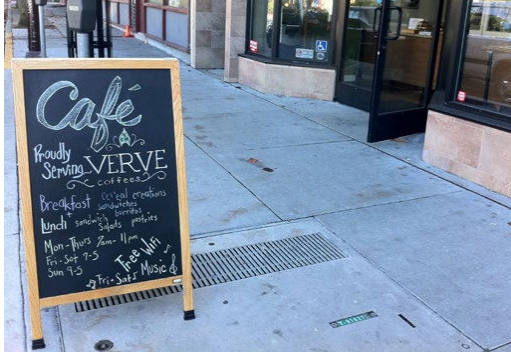 Café
Proudly
Serving VERVE
coffees
Breakfast cereal creations
+ sandwiches
burritos
Lunch sandwich
salads pastries
Mon-Thurs 7am-11pm
Fri-Sat 7-5
Sun 9-5
Free Wifi
Fri-Sats Music